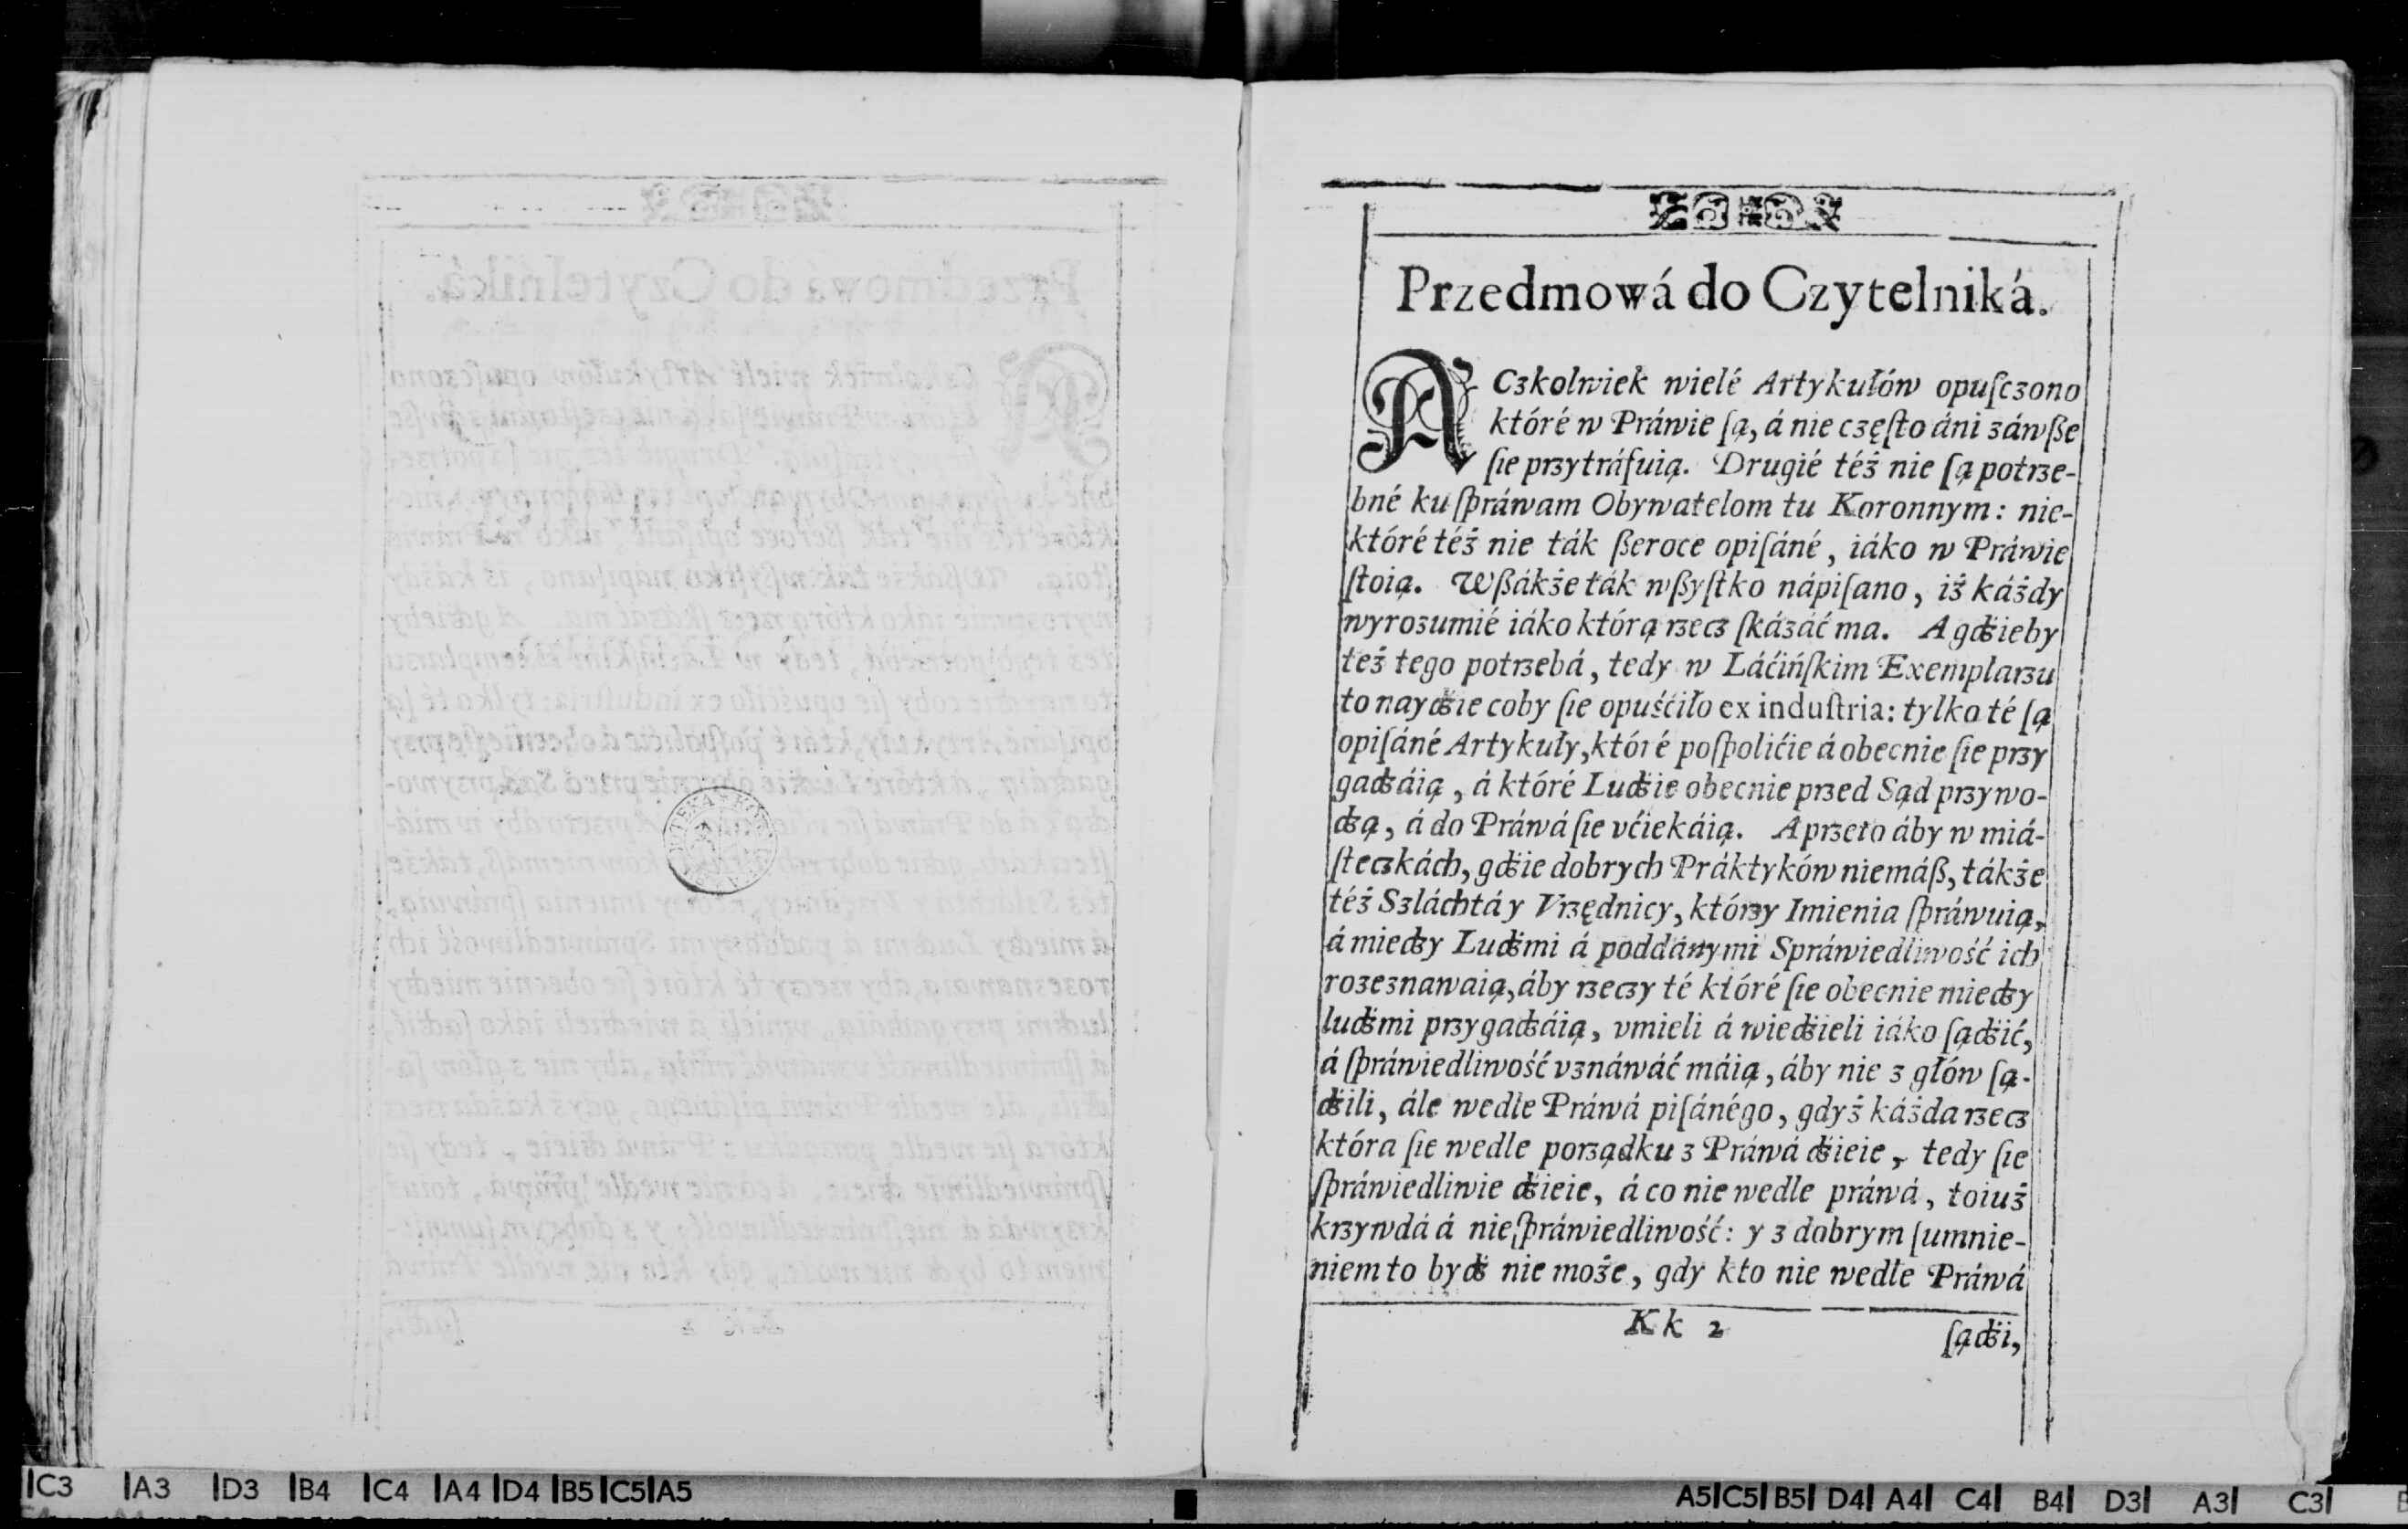 Przedmowá do Czytelniká.
ACzkolwiek wielé Artykułów opuſczono
któré w Práwie ſą, á nie częſto áni záwße
ſie przytráfuią. Drugié téż nie ſą potrze-
bné ku ſpráwam Obywatelom tu Koronnym: nie-
któré téż nie ták ßeroce opiſáné, iáko w Práwie
ſtoią. Wßákże ták wßyſtko nápiſano, iż káżdy
wyrozumié iáko którą rzecz ſkázáć ma. A gdźieby
też tego potrzebá, tedy w Láćińſkim Exemplarzu
to naydźie coby ſie opuśćiło ex induſtria: tylko té ſą
opiſáné Artykuły, któré poſpolićie á obecnie ſie przy
gadzáią, á któré Ludźie obecnie przed Sąd przywo-
dzą, á do Práwá ſie vćiekáią. A przeto áby w miá-
ſteczkách, gdźie dobrych Práktyków niemáß, tákże
téż Szláchtá y Vrzędnicy, którzy Imienia ſpráwuią,
á miedzy Ludźmi á poddánymi Spráwiedliwość ich
rozeznawaią, áby rzeczy té któré ſie obecnie miedzy
ludźmi przygadzáią, vmieli á wiedźieli iáko ſądźić,
á ſpráwiedliwość vznáwáć máią, áby nie z głów ſą-
dźili, ále wedle Práwá piſánégo, gdyż káżda rzecz
która ſie wedle porządku z Práwá dźieie, tedy ſie
ſpráwiedliwie dźieie, á co nie wedle práwá, toiuż
krzywdá á nieſpráwiedliwość: y z dobrym ſumnie-
niem to bydź nie może, gdy kto nie wedle Práwá
Kk 2
ſądźi,
C3 A3 D3 B4 C4 A4 D4 B5 C5 A5
A5 C5 B5 D4 A4 C4 B4 D3 A3 C3